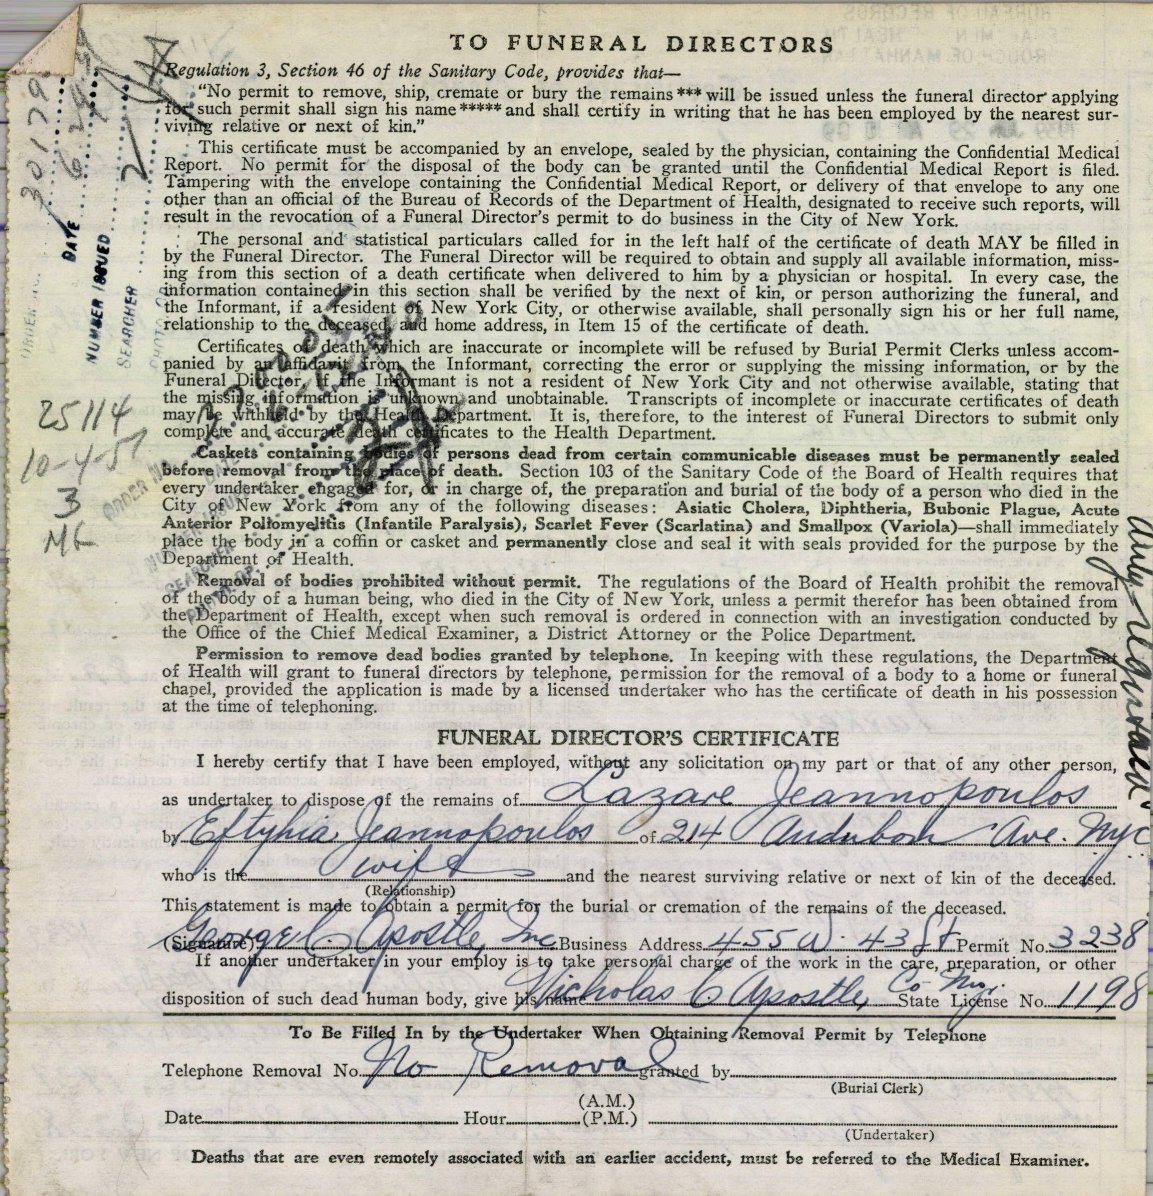 TO FUNERAL DIRECTORS
Regulation 3, Section 46 of the Sanitary Code, provides that—
"No permit to remove, ship, cremate or bury the remains *** will be issued unless the funeral director applying
for such permit shall sign his name ***** and shall certify in writing that he has been employed by the nearest sur-
viving relative or next of kin."
This certificate must be accompanied by an envelope, sealed by the physician, containing the Confidential Medical
Report. No permit for the disposal of the body can be granted until the Confidential Medical Report is filed.
Tampering with the envelope containing the Confidential Medical Report, or delivery of that envelope to any one
other than an official of the Bureau of Records of the Department of Health, designated to receive such reports, will
result in the revocation of a Funeral Director's permit to do business in the City of New York.
The personal and statistical particulars called for in the left half of the certificate of death MAY be filled in
by the Funeral Director. The Funeral Director will be required to obtain and supply all available information, miss-
ing from this section of a death certificate when delivered to him by a physician or hospital. In every case, the
information contained in this section shall be verified by the next of kin, or person authorizing the funeral, and
the Informant, if a resident of New York City, or otherwise available, shall personally sign his or her full name,
relationship to the deceased and home address, in Item 15 of the certificate of death.
Certificates of death which are inaccurate or incomplete will be refused by Burial Permit Clerks unless accom-
panied by an affidavit from the Informant, correcting the error or supplying the missing information, or by the
Funeral Director, if the Informant is not a resident of New York City and not otherwise available, stating that
the missing information is unknown and unobtainable. Transcripts of incomplete or inaccurate certificates of death
may be withheld by the Health Department. It is, therefore, to the interest of Funeral Directors to submit only
complete and accurate death certificates to the Health Department.
Caskets containing bodies of persons dead from certain communicable diseases must be permanently sealed
before removal from the place of death. Section 103 of the Sanitary Code of the Board of Health requires that
every undertaker engaged for, or in charge of, the preparation and burial of the body of a person who died in the
City of New York from any of the following diseases: Asiatic Cholera, Diphtheria, Bubonic Plague, Acute
Anterior Poliomyelitis (Infantile Paralysis), Scarlet Fever (Scarlatina) and Smallpox (Variola)—shall immediately
place the body in a coffin or casket and permanently close and seal it with seals provided for the purpose by the
Department of Health.
Removal of bodies prohibited without permit. The regulations of the Board of Health prohibit the removal
of the body of a human being, who died in the City of New York, unless a permit therefor has been obtained from
the Department of Health, except when such removal is ordered in connection with an investigation conducted by
the Office of the Chief Medical Examiner, a District Attorney or the Police Department.
Permission to remove dead bodies granted by telephone. In keeping with these regulations, the Department
of Health will grant to funeral directors by telephone, permission for the removal of a body to a home or funeral
chapel, provided the application is made by a licensed undertaker who has the certificate of death in his possession
at the time of telephoning.
FUNERAL DIRECTOR'S CERTIFICATE
I hereby certify that I have been employed, without any solicitation on my part or that of any other person,
as undertaker to dispose of the remains of Lazare Jeannopoulos
by Eftyhia Jeannopoulos of 214 Audubon Ave. Nyc
who is the wife and the nearest surviving relative or next of kin of the deceased.
(Relationship)
This statement is made to obtain a permit for the burial or cremation of the remains of the deceased.
(Signature) George C. Apostle, Inc Business Address 455 W. 43 St Permit No. 3238
If another undertaker in your employ is to take personal charge of the work in the care, preparation, or other
disposition of such dead human body, give his name Nicholas C Apostle, Co Mgr. State License No. 1198
To Be Filled In by the Undertaker When Obtaining Removal Permit by Telephone
Telephone Removal No. No Removal granted by
(Burial Clerk)
(A.M.)
Date Hour (P.M.)
(Undertaker)
Deaths that are even remotely associated with an earlier accident, must be referred to the Medical Examiner.
30179
DATE
NUMBER ISSUED 2
SEARCHER
25114
10-4-57
3
MK
ORDER NO.
SEARCHER